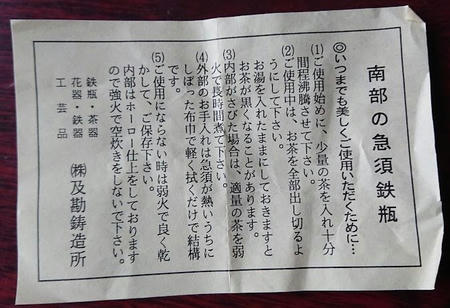 南部の急須鉄瓶
◎いつまでも美しくご使用いただくために…
(1)ご使用始めに、少量の茶を入れ十分
間程沸騰させて下さい。
(2)ご使用中は、お茶を全部出し切るよ
うにして下さい。
お湯を入れたままにしておきますと
お茶が黒くなることがあります。
(3)内部がさびた場合は、適量の茶を弱
火で長時間煮て下さい。
(4)外部のお手入れは急須が熱いうちに
しぼった布巾で軽く拭くだけで結構
です。
(5)ご使用にならない時は弱火で良く乾
かして、ご保存下さい。
内部はホーロー仕上をしております
ので強火で空炊きをしないで下さい。
鉄瓶・茶器
花器・鉄器
工芸品
㈱及勘鋳造所